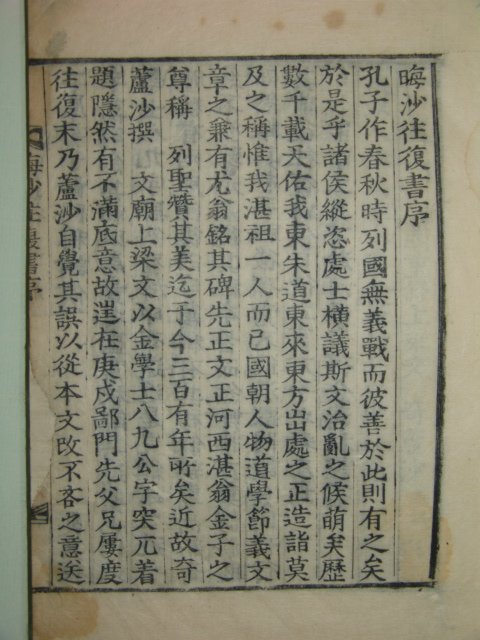 晦沙往復書序
孔子作春秋時列國無義戰而彼善於此則有之矣
於是乎諸侯縱恣處士橫議斯文治亂之候萌矣歷
數千載天佑我東朱道東來東方出處之正造詣莫
及之稱惟我湛祖一人而已國朝人物道學節義文
章之兼有尤翁銘其碑先正文正河西湛翁金子之
尊稱 列聖贊其美迄于今三百有年所矣近故奇
蘆沙撰 文廟上梁文以金學士八九公字突兀著
題隱然有不滿底意故逞在庚戌鄙門先父兄屢度
往復末乃蘆沙自覺其誤以從本文改不吝之意送
晦沙往復書序